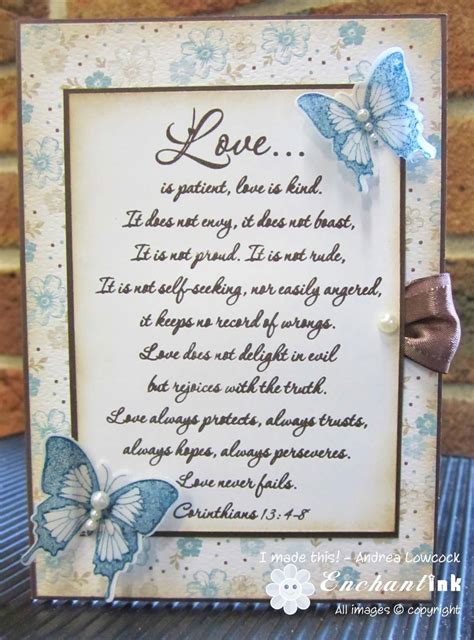 Love...
is patient, love is kind.
It does not envy, it does not boast,
It is not proud. It is not rude,
It is not self-seeking, nor easily angered,
it keeps no record of wrongs.
Love does not delight in evil
but rejoices with the truth.
Love always protects, always trusts,
always hopes, always perseveres.
Love never fails.
Corinthians 13:4-8
I made this! - Andrea Lowcock
EnchantInk
All images © copyright